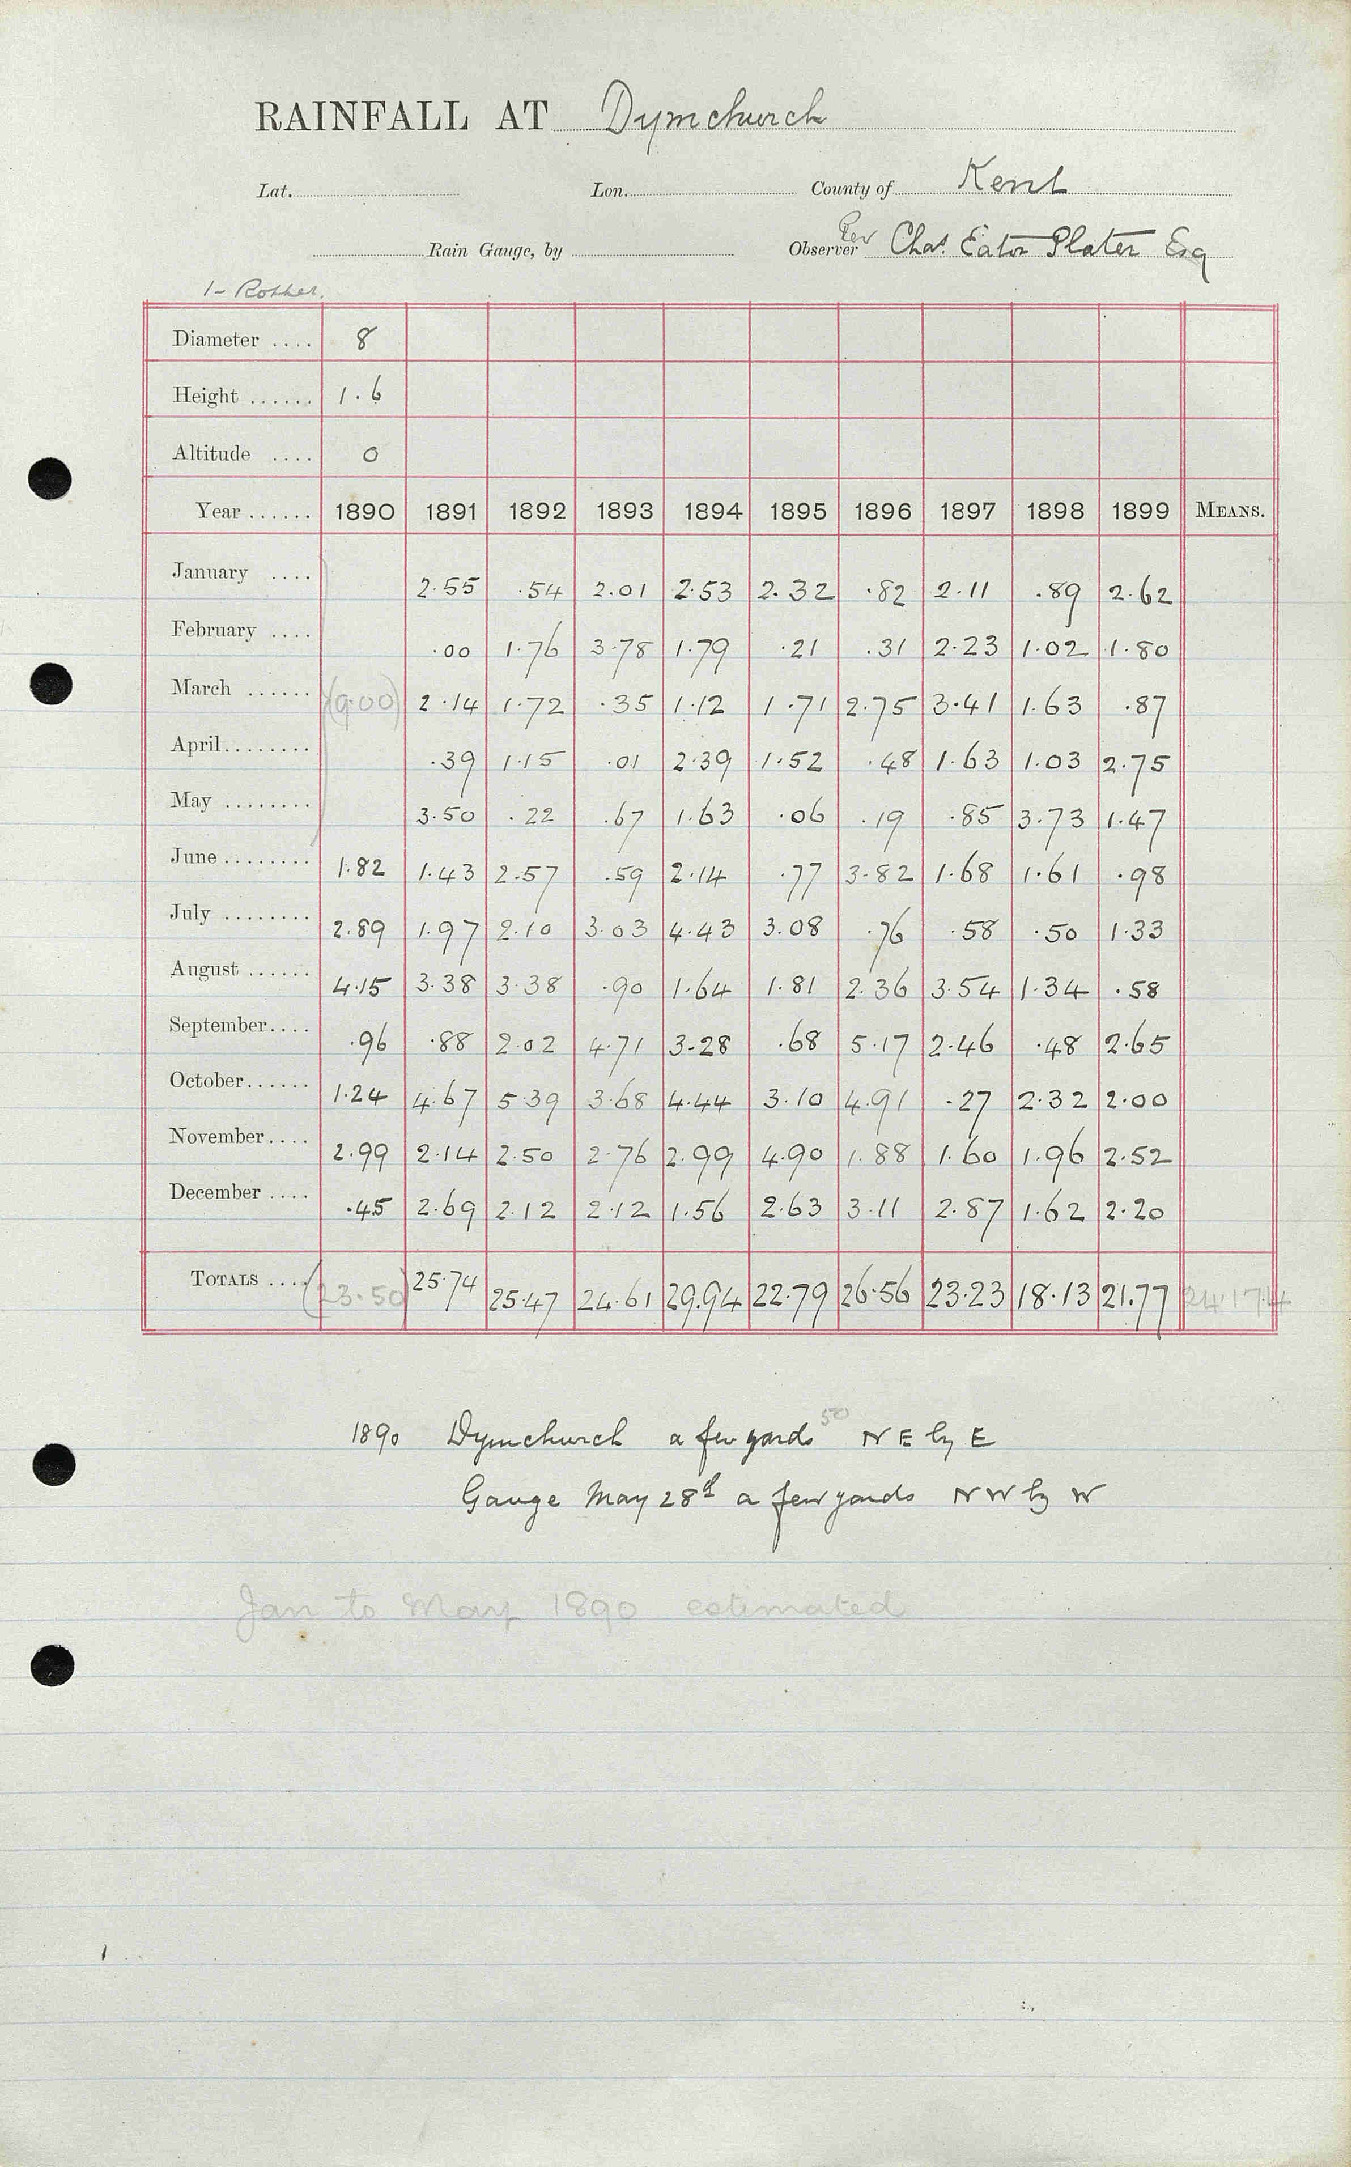 RAINFALL AT Dymchurch
Lat. Lon. County of Kent
Rain Gauge, by Observer Per Chas. Eaton Plater Esq
1- Rother.
Diameter .... 8
Height ...... 1.6
Altitude .... 0
Year ...... 1890 1891 1892 1893 1894 1895 1896 1897 1898 1899 MEANS.
January .... 2.55 .54 2.01 2.53 2.32 .82 2.11 .89 2.62
February .... .00 1.76 3.78 1.79 .21 .31 2.23 1.02 1.80
March ...... (9.00) 2.14 1.72 .35 1.12 1.71 2.75 3.41 1.63 .87
April........ .39 1.15 .01 2.39 1.52 .48 1.63 1.03 2.75
May ........ 3.50 .22 .67 1.63 .06 .19 .85 3.73 1.47
June ........ 1.82 1.43 2.57 .59 2.14 .77 3.82 1.68 1.61 .98
July ........ 2.89 1.97 2.10 3.03 4.43 3.08 .76 .58 .50 1.33
August ...... 4.15 3.38 3.38 .90 1.64 1.81 2.36 3.54 1.34 .58
September.... .96 .88 2.02 4.71 3.28 .68 5.17 2.46 .48 2.65
October...... 1.24 4.67 5.39 3.68 4.44 3.10 4.91 .27 2.32 2.00
November.... 2.99 2.14 2.50 2.76 2.99 4.90 1.88 1.60 1.96 2.52
December .... .45 2.69 2.12 2.12 1.56 2.63 3.11 2.87 1.62 2.20
TOTALS .... (23.50) 25.74 25.47 24.61 29.94 22.79 26.56 23.23 18.13 21.77 24.174
50
1890 Dymchurch a few yards N E by E
Gauge May 28th a few yards N W by W
Jan to May 1890 estimated